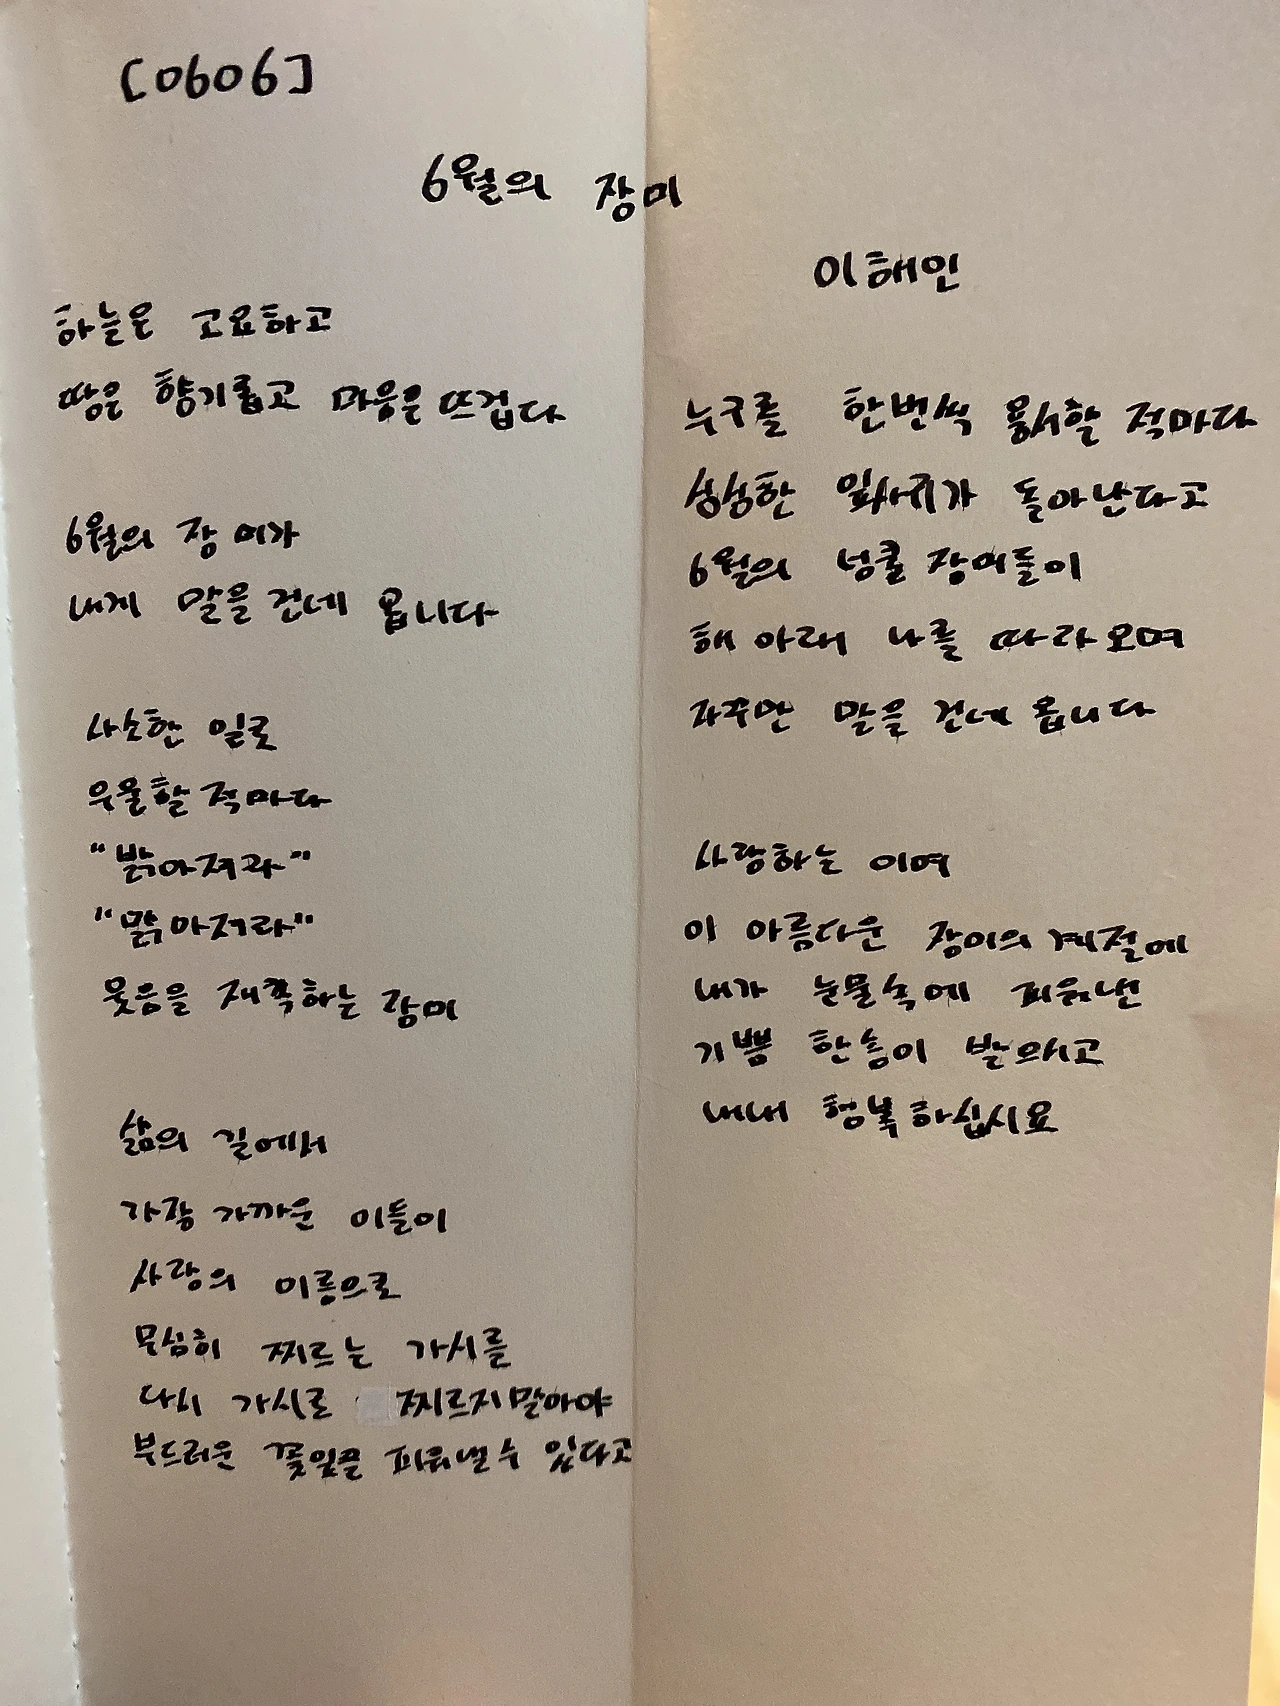 [0606]
6월의 장미
이해인
하늘은 고요하고
땅은 향기롭고 마음은 뜨겁다
6월의 장미가
내게 말을 건네 옵니다
사소한 일로
우울할 적마다
"밝아져라"
"맑아져라"
웃음을 재촉하는 장미
삶의 길에서
가장 가까운 이들이
사랑의 이름으로
무심히 찌르는 가시를
다시 가시로 찌르지 말아야
부드러운 꽃잎을 피워낼 수 있다고
누구를 한번씩 용서할 적마다
싱싱한 잎사귀가 돋아난다고
6월의 넝쿨 장미들이
해 아래 나를 따라오며
자꾸만 말을 건네 옵니다
사랑하는 이여
이 아름다운 장미의 계절에
내가 눈물속에 피워낸
기쁨 한송이 받으시고
내내 행복하십시오